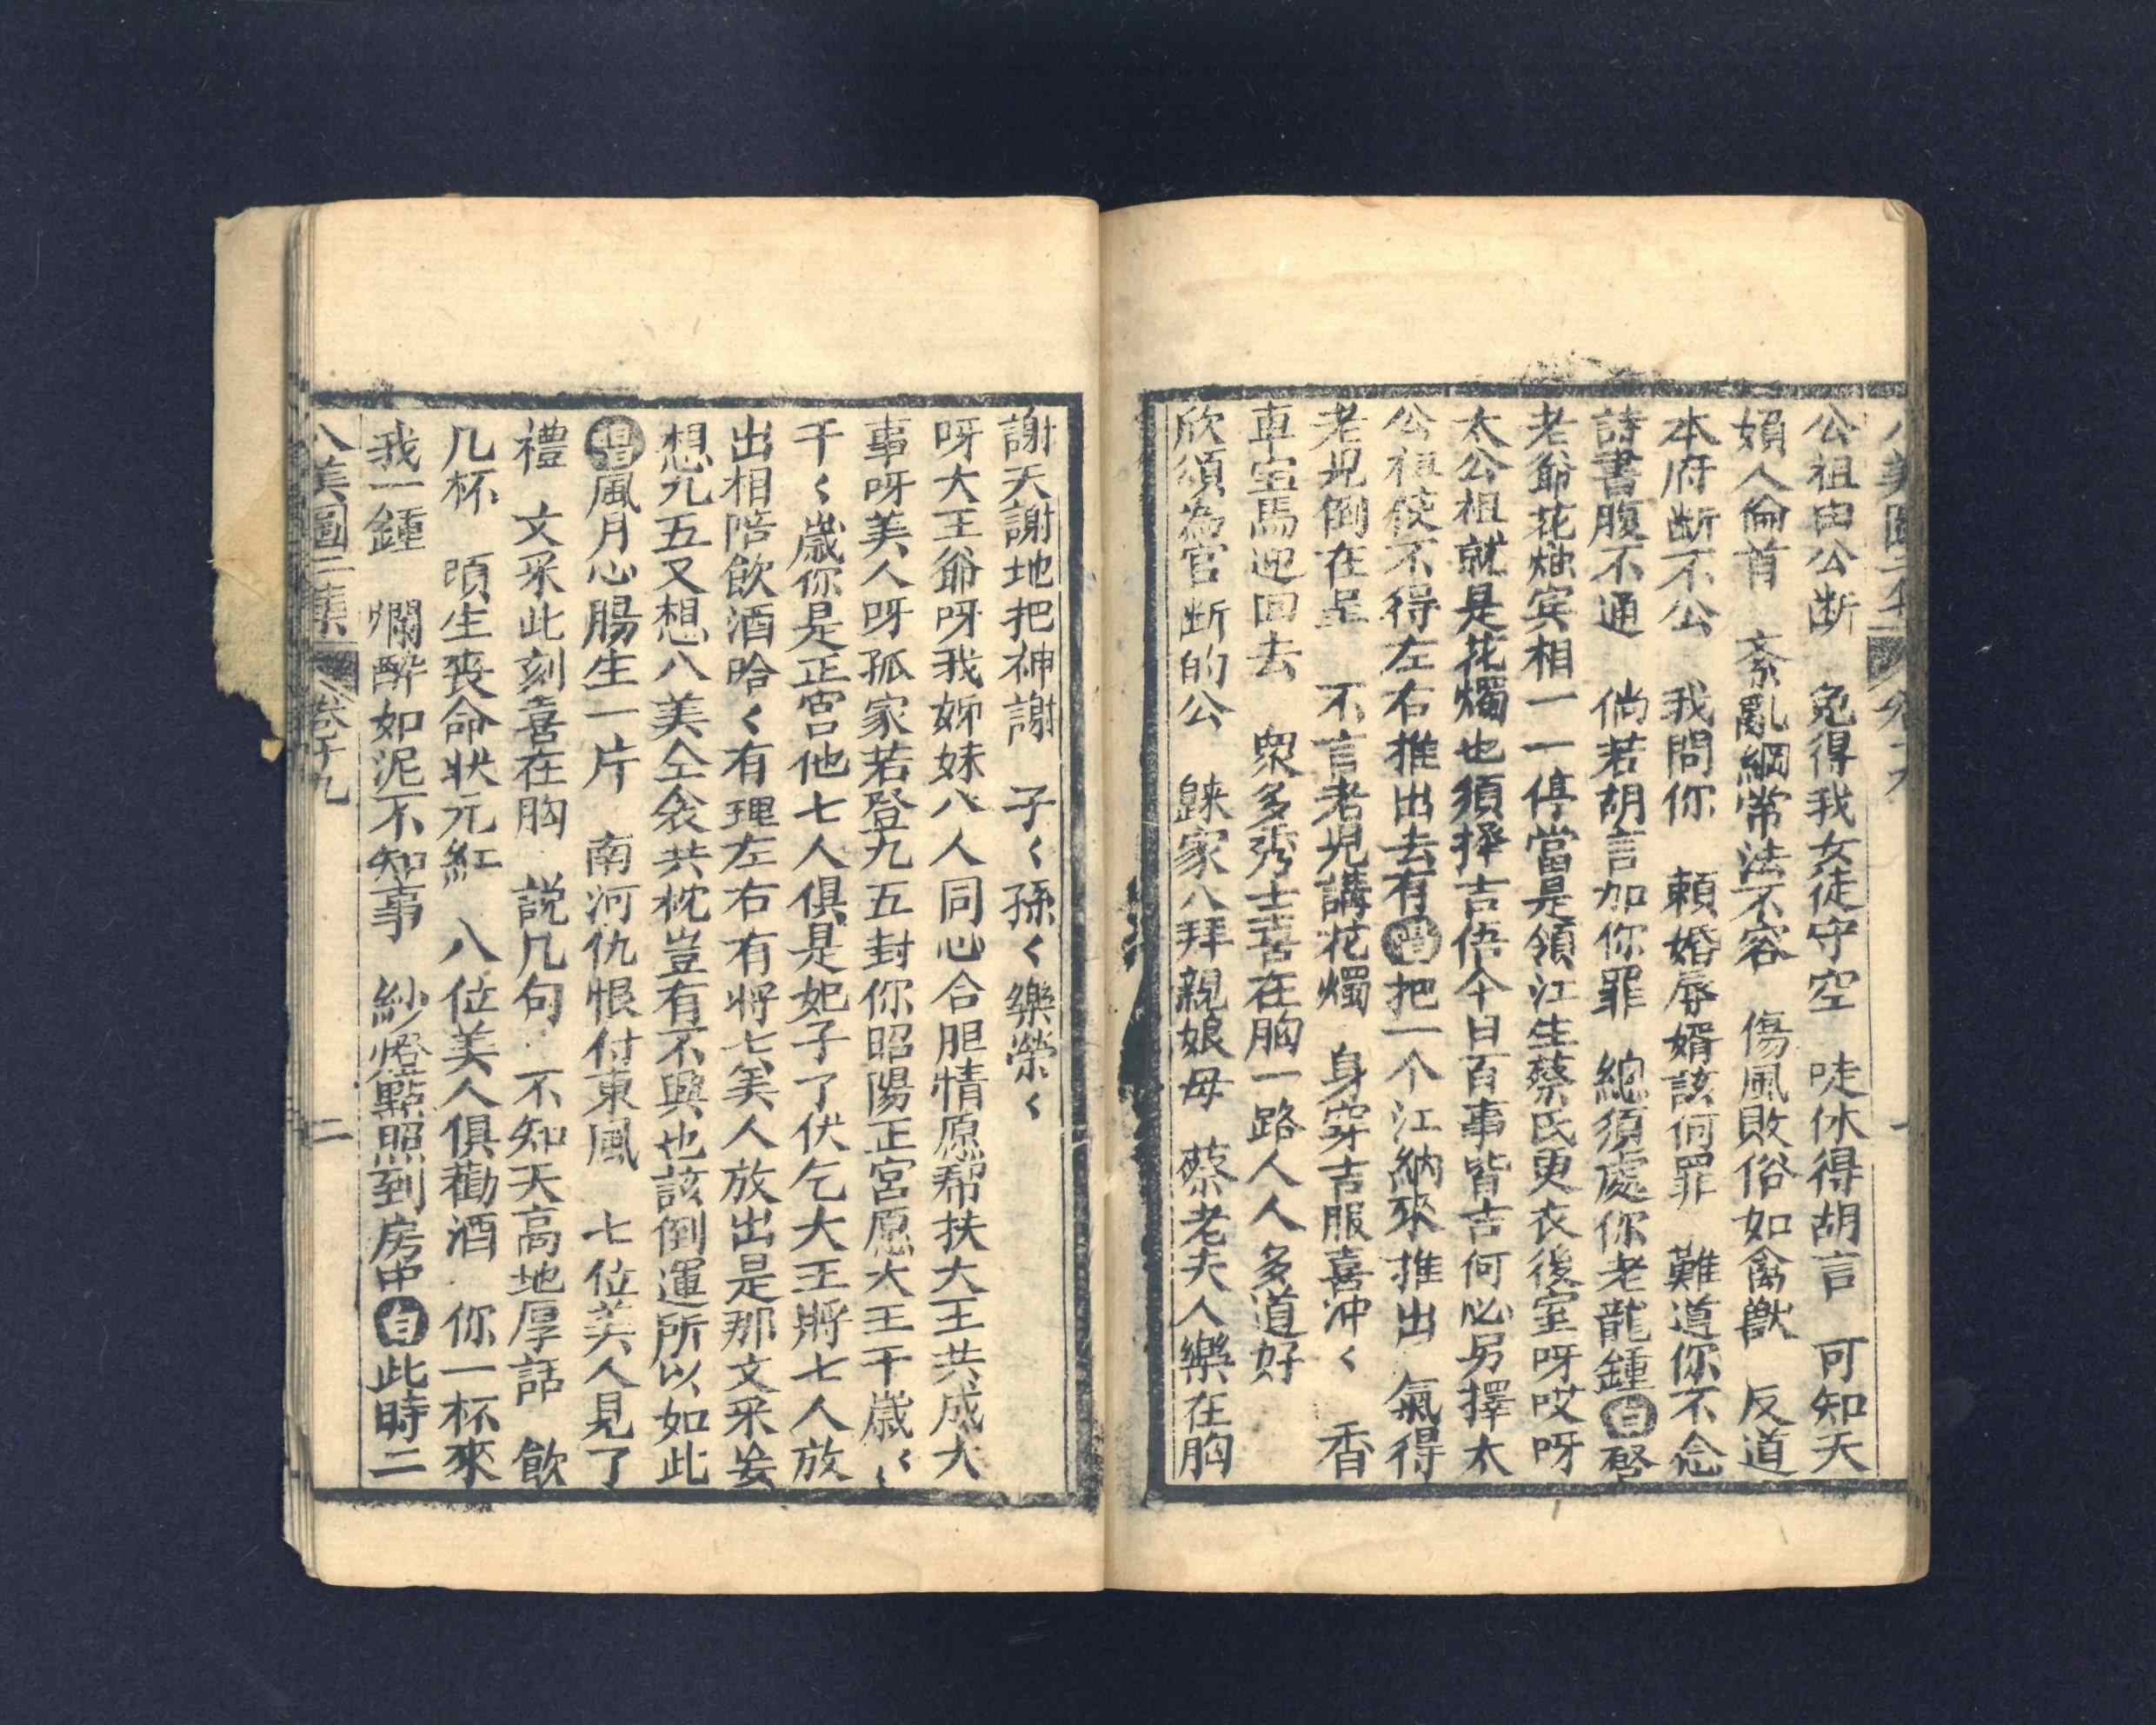 公祖由公断　免得我女徒守空　唗休得胡言　可知天
娟人倫首　紊亂綱常法不容　傷風敗俗如禽獸　反道
本府断不公　我問你　賴婚辱婿該何罪　難道你不念
詩書腹不通　倘若胡言加你罪　總須處你老龍鍾白啓
老爺花烛宾相一一停當是領江生蔡氏更衣後室呀哎呀
太公祖就是花燭也須擇吉悟今日百事皆吉何必另擇太
公祖使不得左右推出去有唱把一个江納來推出　氣得
老児倒在呈　不言老児講花燭　身穿吉服喜冲〱　香
車宝馬迎回去　衆多秀士喜在胸一路人人多道好
欣須為官断的公　歸家八拜親娘母　蔡老夫人樂在胸
謝天謝地把神謝　子〱孫〱樂榮〱
呀大王爺呀我姊妹八人同心合胆情愿帮扶大王共成大
事呀美人呀孤家若登九五封你昭陽正宮愿大王千歲〱
千〱歲你是正宮他七人俱是妃子了伏乞大王將七人放
出相陪飲酒哈〱有理左右有將七美人放出是那文采妄
想九五又想八美仝衾共枕豈有不興也該倒運所以如此
唱風月心腸生一片　南河仇恨付東風　七位美人見了
禮　文采此刻喜在胸　說几句　不知天高地厚話　飲
几杯　頃生喪命狀元紅　八位美人俱勸酒　你一杯來
我一鍾　爛醉如泥不知事　紗燈點照到房中白此時二
八美圖二集　卷十九　二